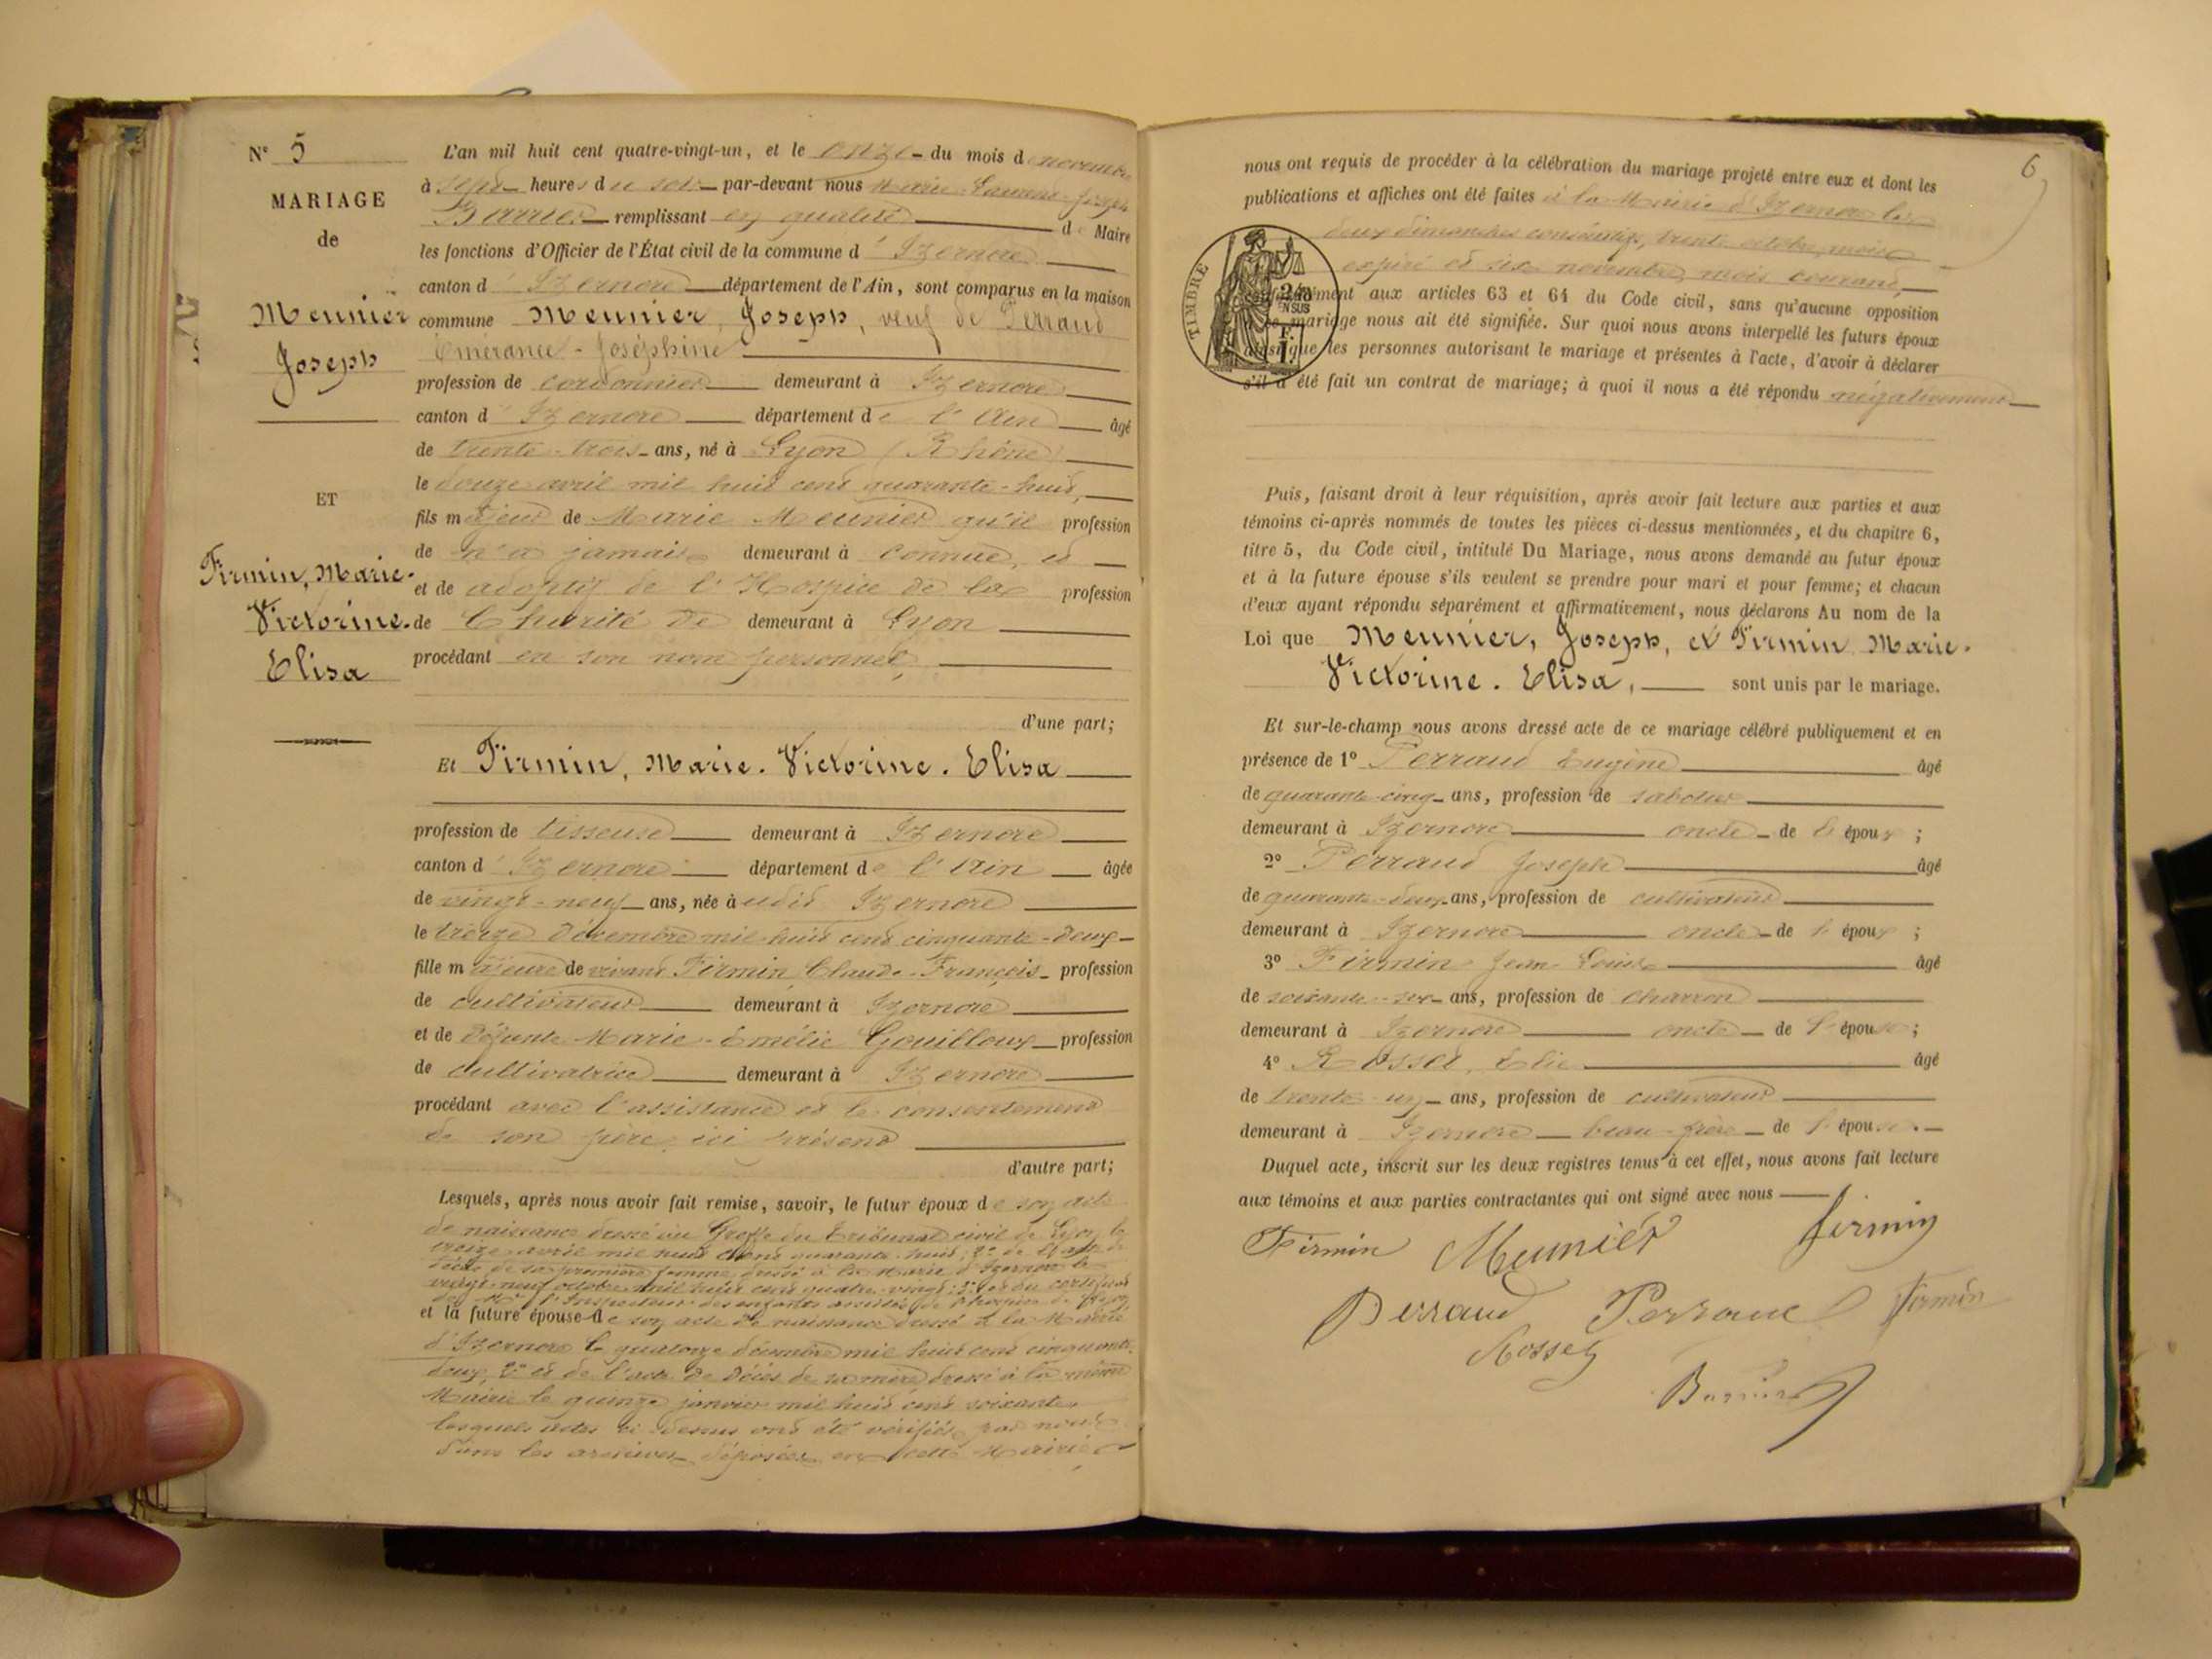 N° 5
MARIAGE
de
Meunier
Joseph
ET
Firmin, Marie-
Victorine-
Elisa
L'an mil huit cent quatre-vingt-un, et le onze du mois de novembre
à sept heures du soir par-devant nous Marie Laurent Joseph
remplissant en qualité de Maire
les fonctions d'Officier de l'État civil de la commune d'Izernore
canton d'Izernore département de l'Ain, sont comparus en la maison
commune Meunier, Joseph, veuf de Perraud
Emérance-Joséphine
profession de cordonnier demeurant à Izernore
canton d'Izernore département de l'Ain âgé
de trente-trois ans, né à Lyon (Rhône)
le douze avril mil huit cent quarante-huit,
fils majeur de Marie Meunier qu'il profession
de n'a jamais demeurant à connue, et
et de adoptif de l'Hospice de la profession
de Charité de demeurant à Lyon
procédant en son nom personnel,
d'une part;
Et Firmin, Marie-Victorine-Elisa
profession de tisseuse demeurant à Izernore
canton d'Izernore département de l'Ain âgée
de vingt-neuf ans, née audit Izernore
le treize décembre mil huit cent cinquante-deux
fille majeure de vivant Firmin, Claude-François profession
de cultivateur demeurant à Izernore
et de défunte Marie-Emélie Gouilloux profession
de cultivatrice demeurant à Izernore
procédant avec l'assistance et le consentement
de son père ici présent
d'autre part;
Lesquels, après nous avoir fait remise, savoir, le futur époux de son acte
de naissance dressé au Greffe du Tribunal civil de Lyon le
treize avril mil huit cent quarante-huit, 2° de l'acte de
décès de sa première femme dressé à la Mairie d'Izernore le
vingt-neuf octobre mil huit cent quatre-vingt; 3° et du certificat
de Mr l'Inspecteur des enfants assistés de l'hospice de Lyon
et la future épouse de son acte de naissance dressé à la Mairie
d'Izernore le quatorze décembre mil huit cent cinquante-
deux, 2° et de l'acte de décès de sa mère dressé à la même
Mairie le quinze janvier mil huit cent soixante,
lesquels actes ci-dessus ont été vérifiés par nous
dans les archives déposées en cette Mairie,
6
nous ont requis de procéder à la célébration du mariage projeté entre eux et dont les
publications et affiches ont été faites à la Mairie d'Izernore les
deux dimanches consécutifs, trente octobre, mois
expiré et six novembre, mois courant,
TIMBRE
conformément aux articles 63 et 64 du Code civil, sans qu'aucune opposition
à ce mariage nous ait été signifiée. Sur quoi nous avons interpellé les futurs époux
ainsi que les personnes autorisant le mariage et présentes à l'acte, d'avoir à déclarer
s'il a été fait un contrat de mariage; à quoi il nous a été répondu négativement
Puis, faisant droit à leur réquisition, après avoir fait lecture aux parties et aux
témoins ci-après nommés de toutes les pièces ci-dessus mentionnées, et du chapitre 6,
titre 5, du Code civil, intitulé Du Mariage, nous avons demandé au futur époux
et à la future épouse s'ils veulent se prendre pour mari et pour femme; et chacun
d'eux ayant répondu séparément et affirmativement, nous déclarons Au nom de la
Loi que Meunier, Joseph, et Firmin Marie-
Victorine-Elisa, sont unis par le mariage.
Et sur-le-champ nous avons dressé acte de ce mariage célébré publiquement et en
présence de 1° Perraud Eugène âgé
de quarante-cinq ans, profession de sabotier
demeurant à Izernore oncle de l'époux ;
2° Perraud Joseph âgé
de quarante-deux ans, profession de cultivateur
demeurant à Izernore oncle de l'époux ;
3° Firmin Jean Louis âgé
de ans, profession de charron
demeurant à Izernore oncle de l'épouse ;
4° Rosset, Elie âgé
de trente-un ans, profession de cultivateur
demeurant à Izernore beau-frère de l'épouse.
Duquel acte, inscrit sur les deux registres tenus à cet effet, nous avons fait lecture
aux témoins et aux parties contractantes qui ont signé avec nous
Firmin Meunier firmin
Perraud Perraud Firmin
Rosset